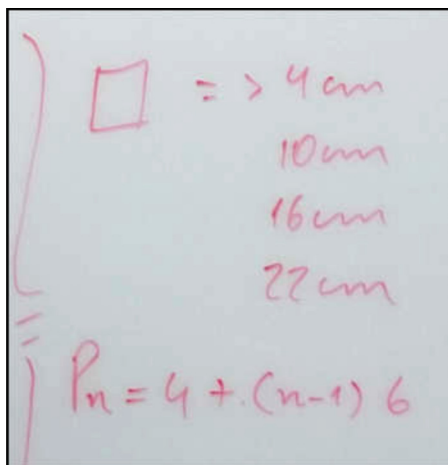 => 4cm
10cm
16cm
22cm
Pn = 4 + (n-1) 6